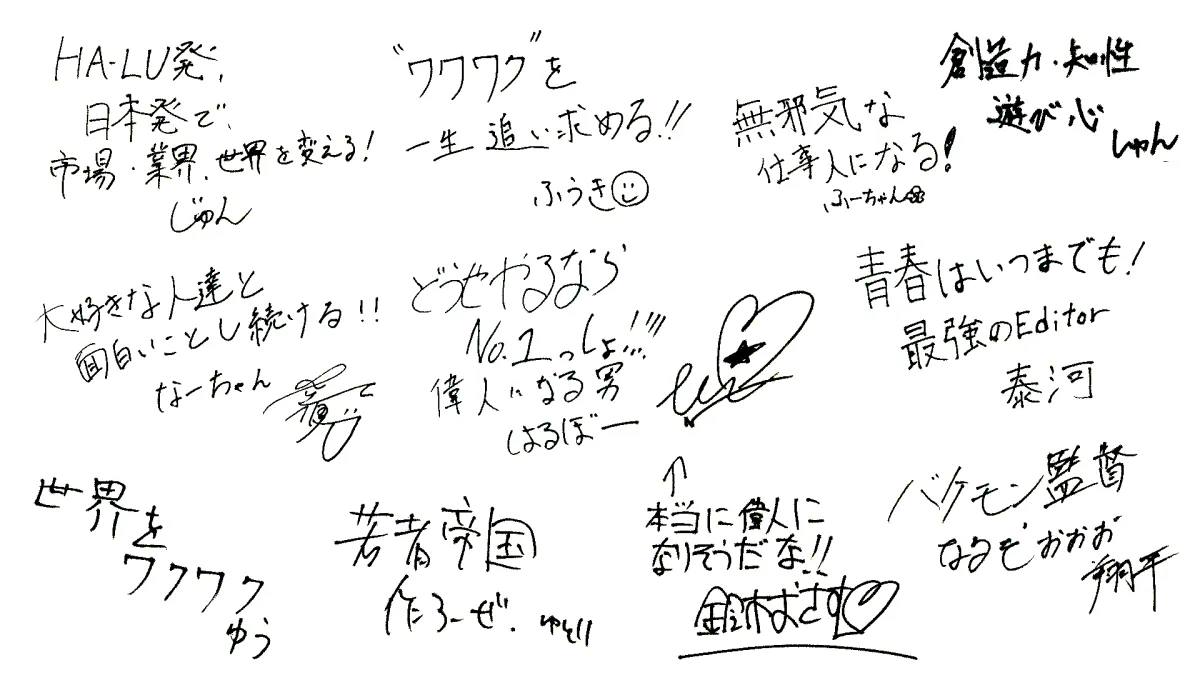 HA-LU発、
日本発で、
市場・業界、世界を変える!
じゅん
"ワクワク"を
一生追い求める!!
ふうき
無邪気な
仕事人になる!
ふーちゃん
創造力・知性
遊び心
しゅん
大好きな人達と
面白いことし続ける!!
なーちゃん
どうせやるなら
No.1っしょ!!!
偉人になる男
はるぼー
青春はいつまでも!
最強のEditor
泰河
世界を
ワクワク
ゆう
若者帝国
作ろーぜ.
↑
本当に偉人に
なりそうだな!!
バケモン監督
なるぞおおお
翔平